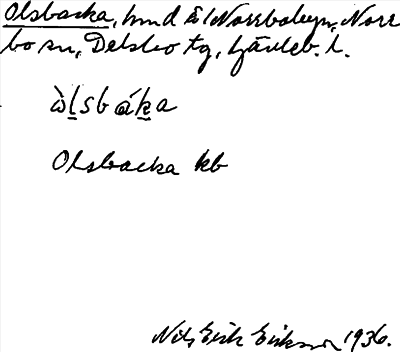 Olsbacka, hmd å Norrbobyn, Norr
bo sn, Delsbo tg, Gävleb. l.
òlsbáka
Olsbacka kb
Nils Erik Eriksson 1936.